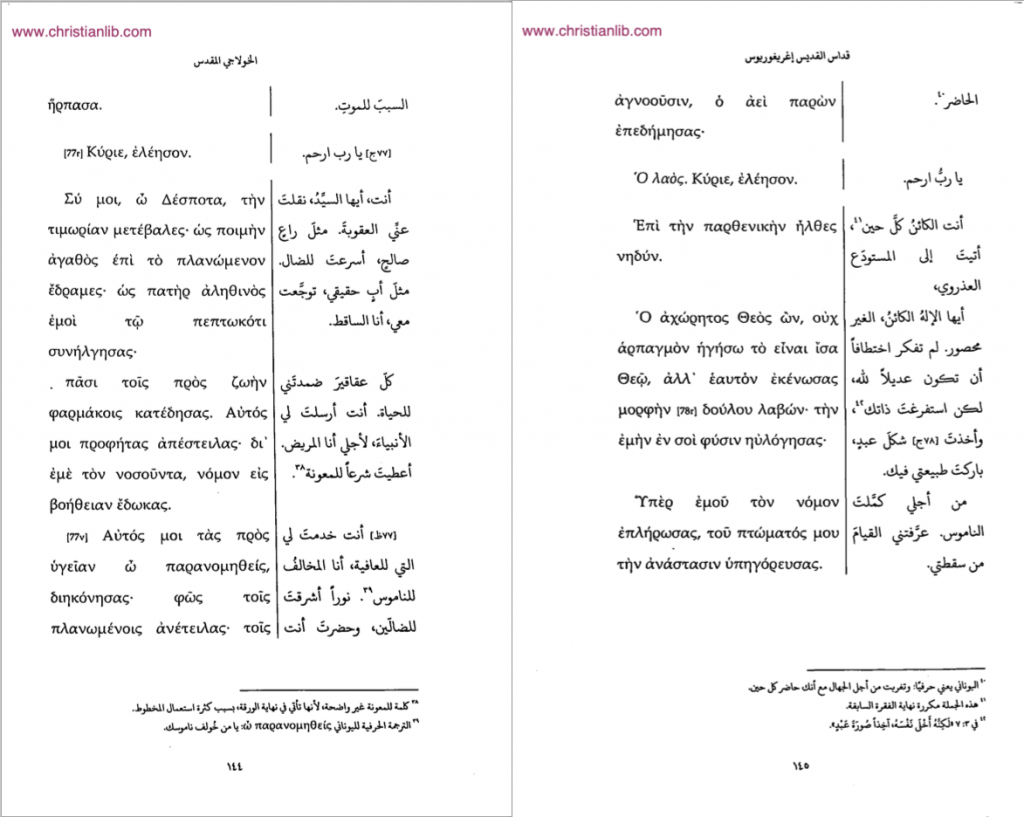 www.christianlib.com
الخولاجي المقدس
ἥρπασα.
[77r] Κύριε, ἐλέησον.
Σύ μοι, ὦ Δέσποτα, τὴν
τιμωρίαν μετέβαλες· ὡς ποιμὴν
ἀγαθὸς ἐπὶ τὸ πλανώμενον
ἔδραμες· ὡς πατὴρ ἀληθινὸς
ἐμοὶ τῷ πεπτωκότι
συνήλγησας·
πᾶσι τοῖς πρὸς ζωὴν
φαρμάκοις κατέδησας. Αὐτός
μοι προφήτας ἀπέστειλας· δι᾽
ἐμὲ τὸν νοσοῦντα, νόμον εἰς
βοήθειαν ἔδωκας.
[77v] Αὐτός μοι τὰς πρὸς
ὑγεῖαν ὦ παρανομηθείς,
διηκόνησας· φῶς τοῖς
πλανωμένοις ἀνέτειλας· τοῖς
السببّ للموتِ.
[٧٧ج] يا رب ارحم.
أنت، أيها السيِّدُ، نقلتَ
عنِّي العقوبةَ. مثلَ راعٍ
صالحٍ، أسرعتَ للضال.
مثلَ أبٍ حقيقي، توجَّعت
معي، أنا الساقط.
كلّ عقاقيرَ ضمدتَني
للحياة. أنت أرسلتَ لي
الأنبياءَ، لأجلي أنا المريض.
أعطيتَ شرعاً للمعونة٣٨.
[٧٧ظ] أنت خدمتَ لي
التي للعافية، أنا المخالفُ
للناموس٣٩. نوراً أشرقتَ
للضالّين، وحضرتَ أنت
٣٨ كلمة للمعونة غير واضحة، لأنها تأتي في نهاية الورقة، بسبب كثرة استعمال المخطوط.
٣٩ الترجمة الحرفية لليوناني ὦ παρανομηθείς: يا من خُولف ناموسك.
١٤٤
www.christianlib.com
قداس القديس إغريغوريوس
ἀγνοοῦσιν, ὁ ἀεὶ παρὼν
ἐπεδήμησας·
Ὁ λαὸς. Κύριε, ἐλέησον.
Ἐπὶ τὴν παρθενικὴν ἦλθες
νηδύν.
Ὁ ἀχώρητος Θεὸς ὢν, οὐχ
ἁρπαγμὸν ἡγήσω τὸ εἶναι ἴσα
Θεῷ, ἀλλ᾽ ἑαυτὸν ἐκένωσας
μορφὴν [78r] δούλου λαβών· τὴν
ἐμὴν ἐν σοὶ φύσιν ηὐλόγησας·
Ὑπὲρ ἐμοῦ τὸν νόμον
ἐπλήρωσας, τοῦ πτώματός μου
τὴν ἀνάστασιν ὑπηγόρευσας.
الحاضر٤٠.
يا ربُّ ارحم.
أنت الكائنُ كلَّ حين٤١،
أتيتَ إلى المستودَع
العذروي،
أيها الإلهُ الكائنُ، الغير
محصور. لم تفكر اختطافاً
أن تكون عديلاً لله،
لكن استفرغتَ ذاتك٤٢،
وأخذتَ [٧٨ج] شكلَ عبدٍ،
باركتَ طبيعتي فيك.
من أجلي كمَّلتَ
الناموس. عرَّفتني القيامَ
من سقطتي.
٤٠ اليوناني يعني حرفيًا: وتغربت من أجل الجهال مع أنك حاضر كل حين.
٤١ هذه الجملة مكررة نهاية الفقرة السابقة.
٤٢ في ٢: ٧ «لَكِنَّهُ أَخْلَى نَفْسَهُ، آخِذاً صُورَةَ عَبْدٍ».
١٤٥